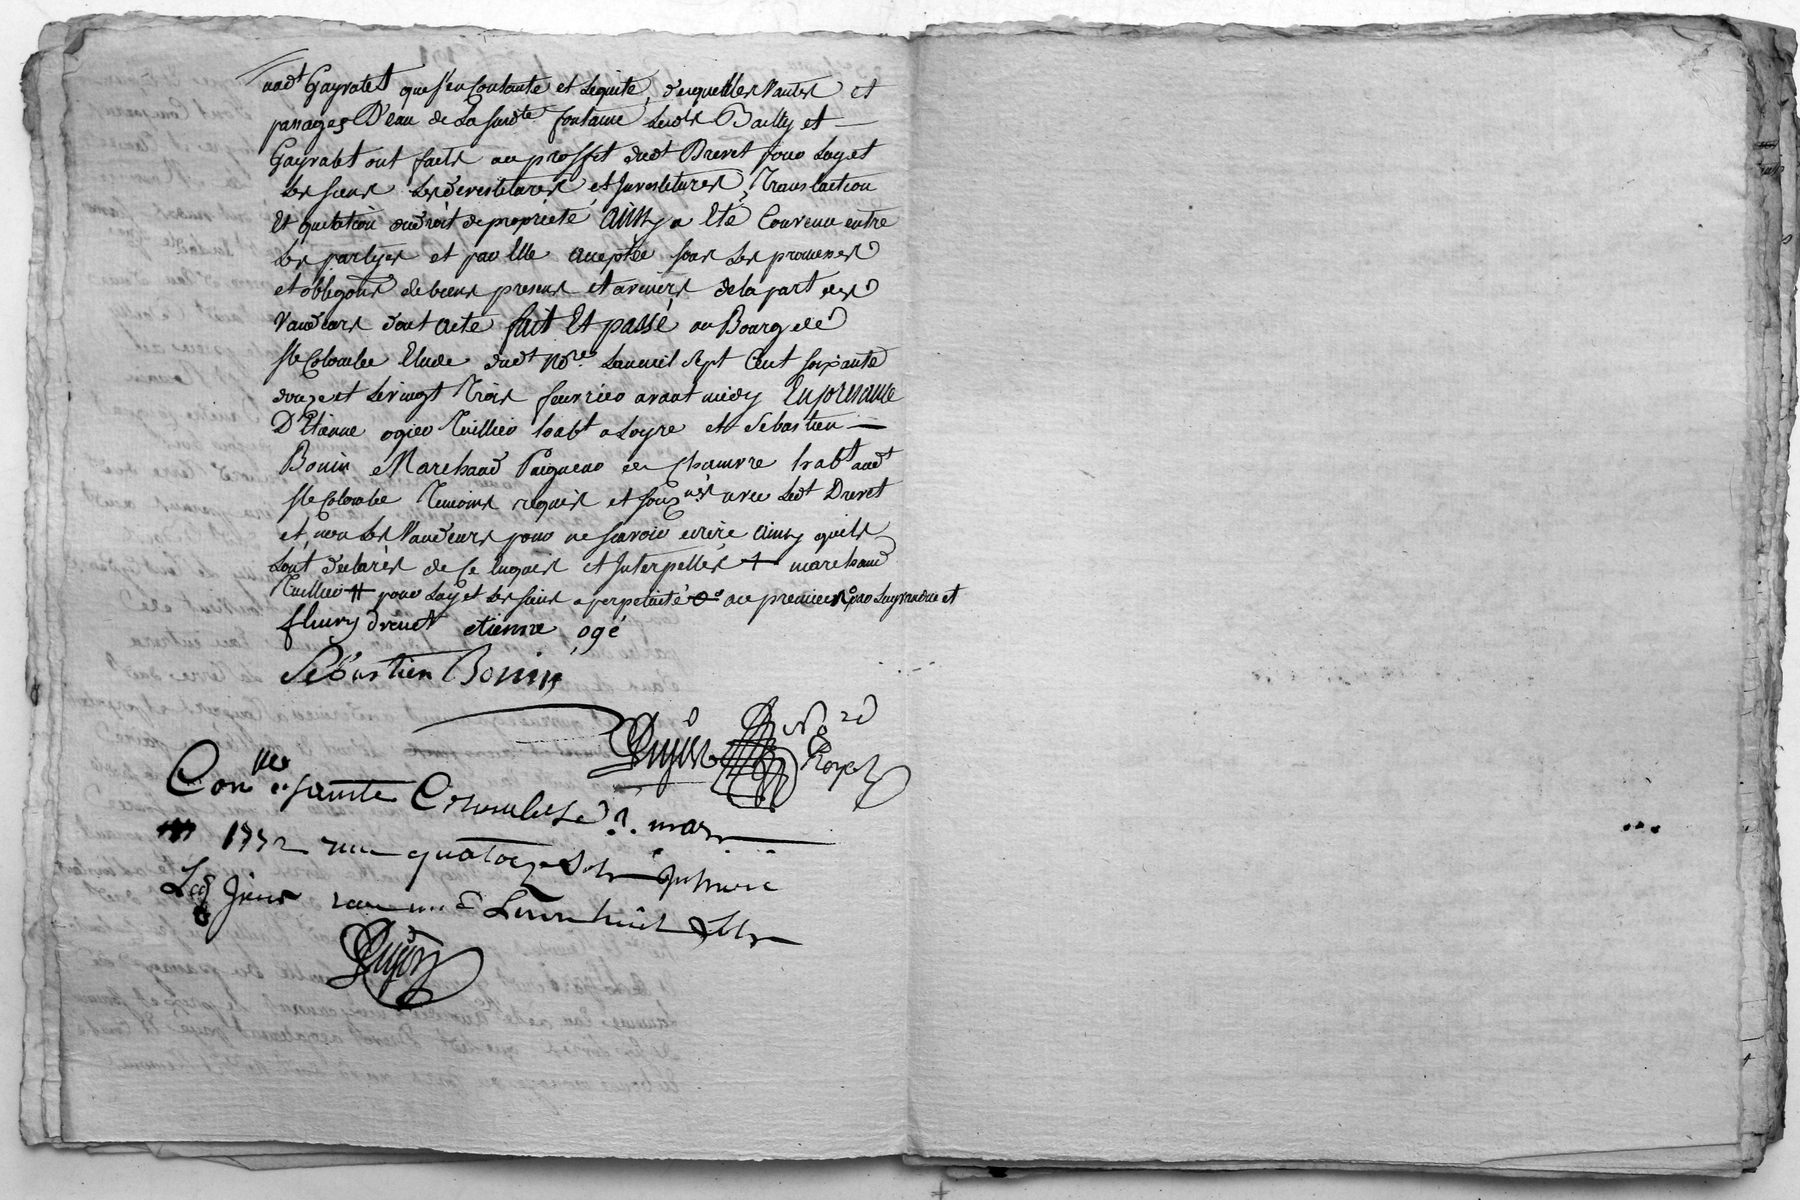 aud.t Gayrabet qu'en Constante et Lequite, desquelles Vantes et
passages D'eau de La Susd.te fontaine Lesd.s Bailly et
Gayrabet ont faits au proffit dud.t Drevet pour Luy et
Les siens Les devestitures, et Investitures, Translaction
Et quitation du droit de propriete, Ainsy a Eté Convenu entre
Les partyes et par Elle acceptée sous Les promesses
et obligons de biens presens et avenirs de la part des
Vandeurs dont Acte fait Et passé au Bourg de
Ste Colombe Etude dud.t No.re Lan mil Sept Cent Soixante
douze et Le vingt Trois fevrier avant midy En presance
D'Etienne ogier Tuillier habt a Loyre et Sebastien
Bonin Marchand Peigneur de Chanvre habt aud.t
Ste Colombe Temoins requis et soussig.nés avec Led.t Drevet
et, non Les Vandeurs pour ne scavoir ecrire Ainsy quils
L'ont declarés de Ce Enquis et Interpellés + marchand
Tuillier # pour Luy et Les siens a perpetuité au premier par Laquandue et
fleury drevet etienne ogé
Sébastien Bonin
Dujon No.re Royal
Con.lle a Sainte Colombe Le 2. mars
1772 reçu quatorze sols
huit
Dujon